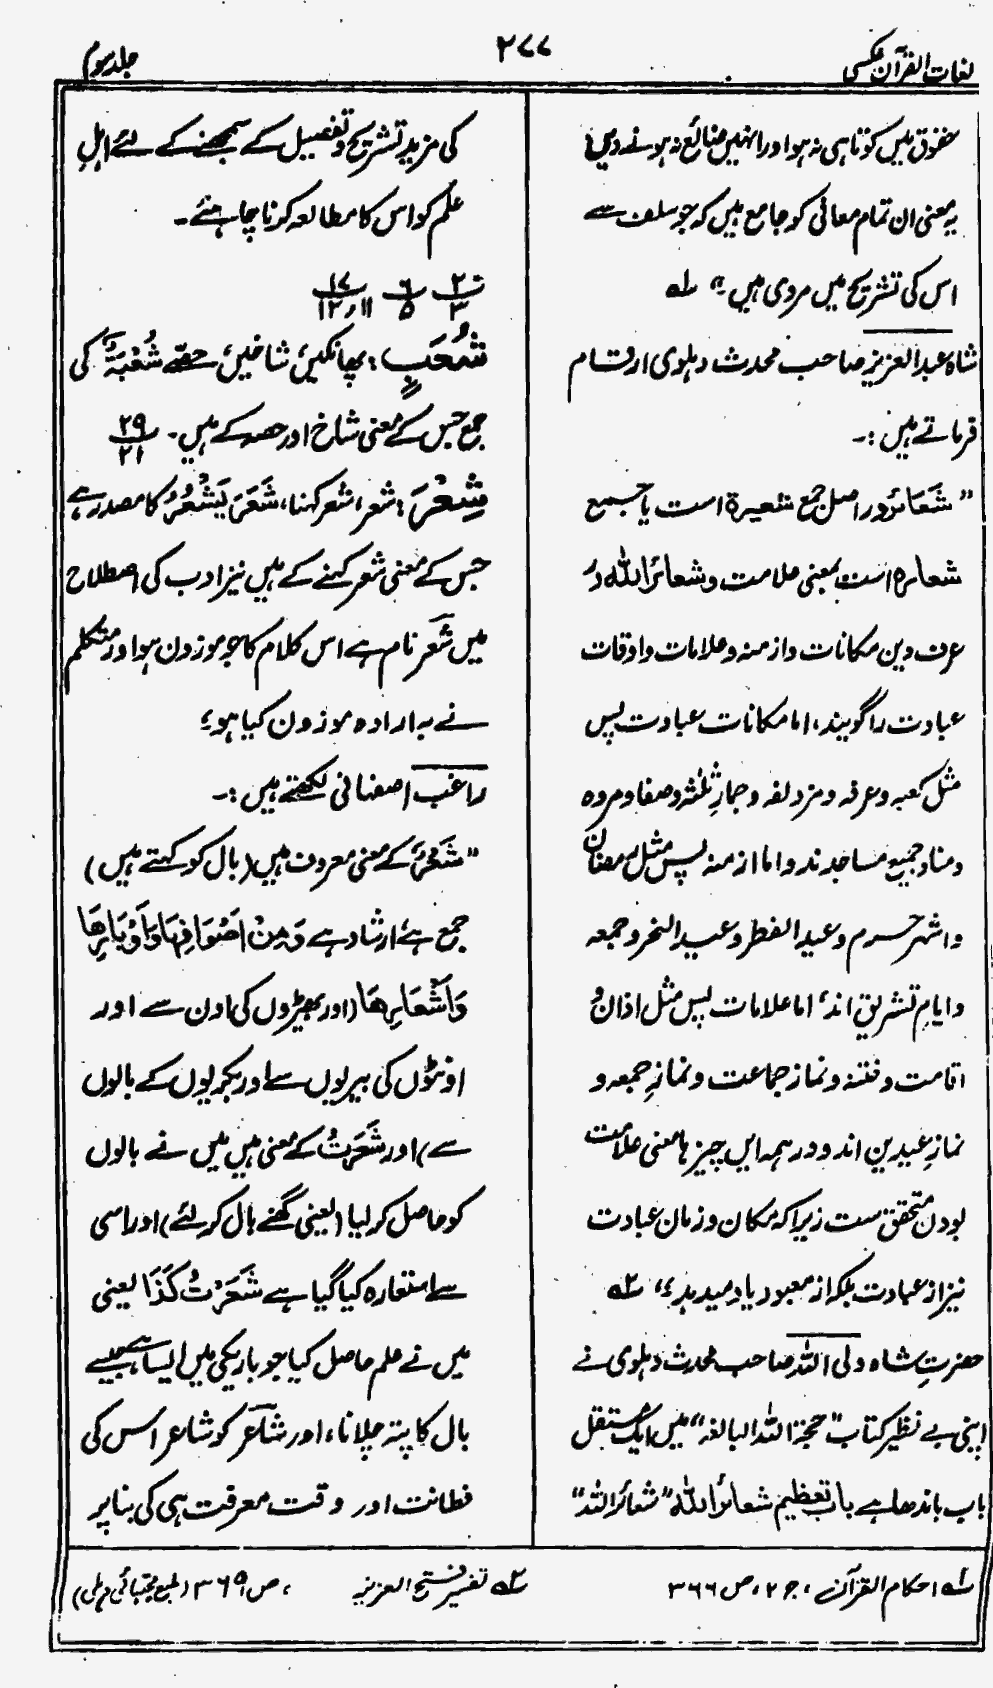 لغات القرآن عکسی
۲۷۷
جلد سوم
حقوق میں کوتاہی نہ ہو اور انہیں ضائع نہ ہونے دیں
یہ معنی ان تمام معانی کو جامع ہیں کہ جو سلف سے
اس کی تشریح میں مروی ہیں۔" ۱ے
شاہ عبدالعزیز صاحب محدث دہلوی ارقام
فرماتے ہیں :۔
"شَعَائر در اصل جمع شعیرة است یا جمع
شعارہ است بمعنی علامت و شعائر اللہ در
عرف دین مکانات و ازمنہ و علامات و اوقات
عبادت را گویند، اما مکانات عبادت پس
مثل کعبہ و عرفہ و مزدلفہ و جمارِ ثلٰثہ و صفا و مروہ
و منا و جمیع مساجد ند و اما ازمنہ پس مثل رمضان
و اشہر حرم و عید الفطر و عید النحر و جمعہ
و ایامِ تشریق اند، اما علامات پس مثل اذان و
اقامت و ختنہ و نماز جماعت و نمازِ جمعہ و
نمازِ عیدین اند و در ہمہ ایں چیزہا معنی علامت
بودن متحقق ست زیرا کہ مکان و زمان عبادت
نیز از عبادت بلکہ از معبود یاد میدہد،" ۲ے
حضرتِ شاہ ولی اللہ صاحب محدث دہلوی نے
اپنی بے نظیر کتاب "حجۃ اللہ البالغہ" میں ایک مستقل
باب باندھا ہے باب تعظیم شعائر اللہ "شعائر اللہ"
کی مزید تشریح و تفصیل کے سمجھنے کے لئے اہلِ
علم کو اس کا مطالعہ کرنا چاہئے۔
۲ ۶ ۱۷
۳ ۵ ۱۱ر۱۲
شُعَبٍ : پھانکیں، شاخیں، حصّے شُعْبَةٌ کی
جمع جس کے معنی شاخ اور حصہ کے ہیں۔ ۲۹
۲۱
شِعْرَ : شعر، شعر کہنا، شَعَرَ یَشْعُرُ کا مصدر ہے
جس کے معنی شعر کہنے کے ہیں نیز ادب کی اصطلاح
میں شعر نام ہے اس کلام کا جو موزون ہو اور متکلم
نے بہ ارادہ موزون کیا ہو،
راغب اصفہانی لکھتے ہیں :۔
"شَعْرٌ کے معنی معروف ہیں (بال کو کہتے ہیں)
جمع ہے، ارشاد ہے وَمِنْ اَصْوَافِهَا وَاَوْبَارِهَا
وَاَشْعَارِهَا (اور بھیڑوں کی اون سے اور
اونٹوں کی ببریوں سے اور بکریوں کے بالوں
سے) اور شَعَرْتُ کے معنی ہیں میں نے بالوں
کو حاصل کر لیا (یعنی گھنے بال کر لئے) اور اسی
سے استعارہ کیا گیا ہے شَعَرْتُ كَذَا یعنی
میں نے علم حاصل کیا جو باریکی میں ایسا ہے جیسے
بال کا پتہ چلانا، اور شاعر کو شاعر اس کی
فطانت اور دقت معرفت ہی کی بنا پر
۱ے احکام القرآن، ج ۲، ص ۳۶۶
۲ے تفسیر فتح العزیز ، ص ۳۶۹ (طبع مجتبائی دہلی)